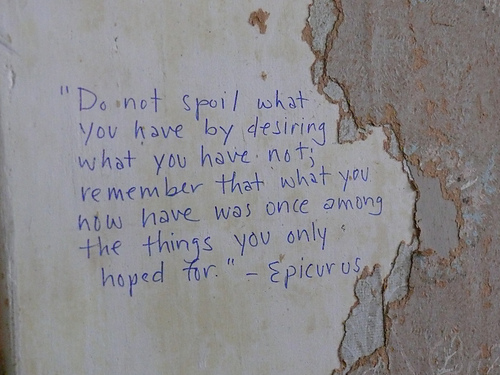 "Do not spoil what
you have by desiring
what you have not;
remember that what you
now have was once among
the things you only
hoped for." - Epicurus